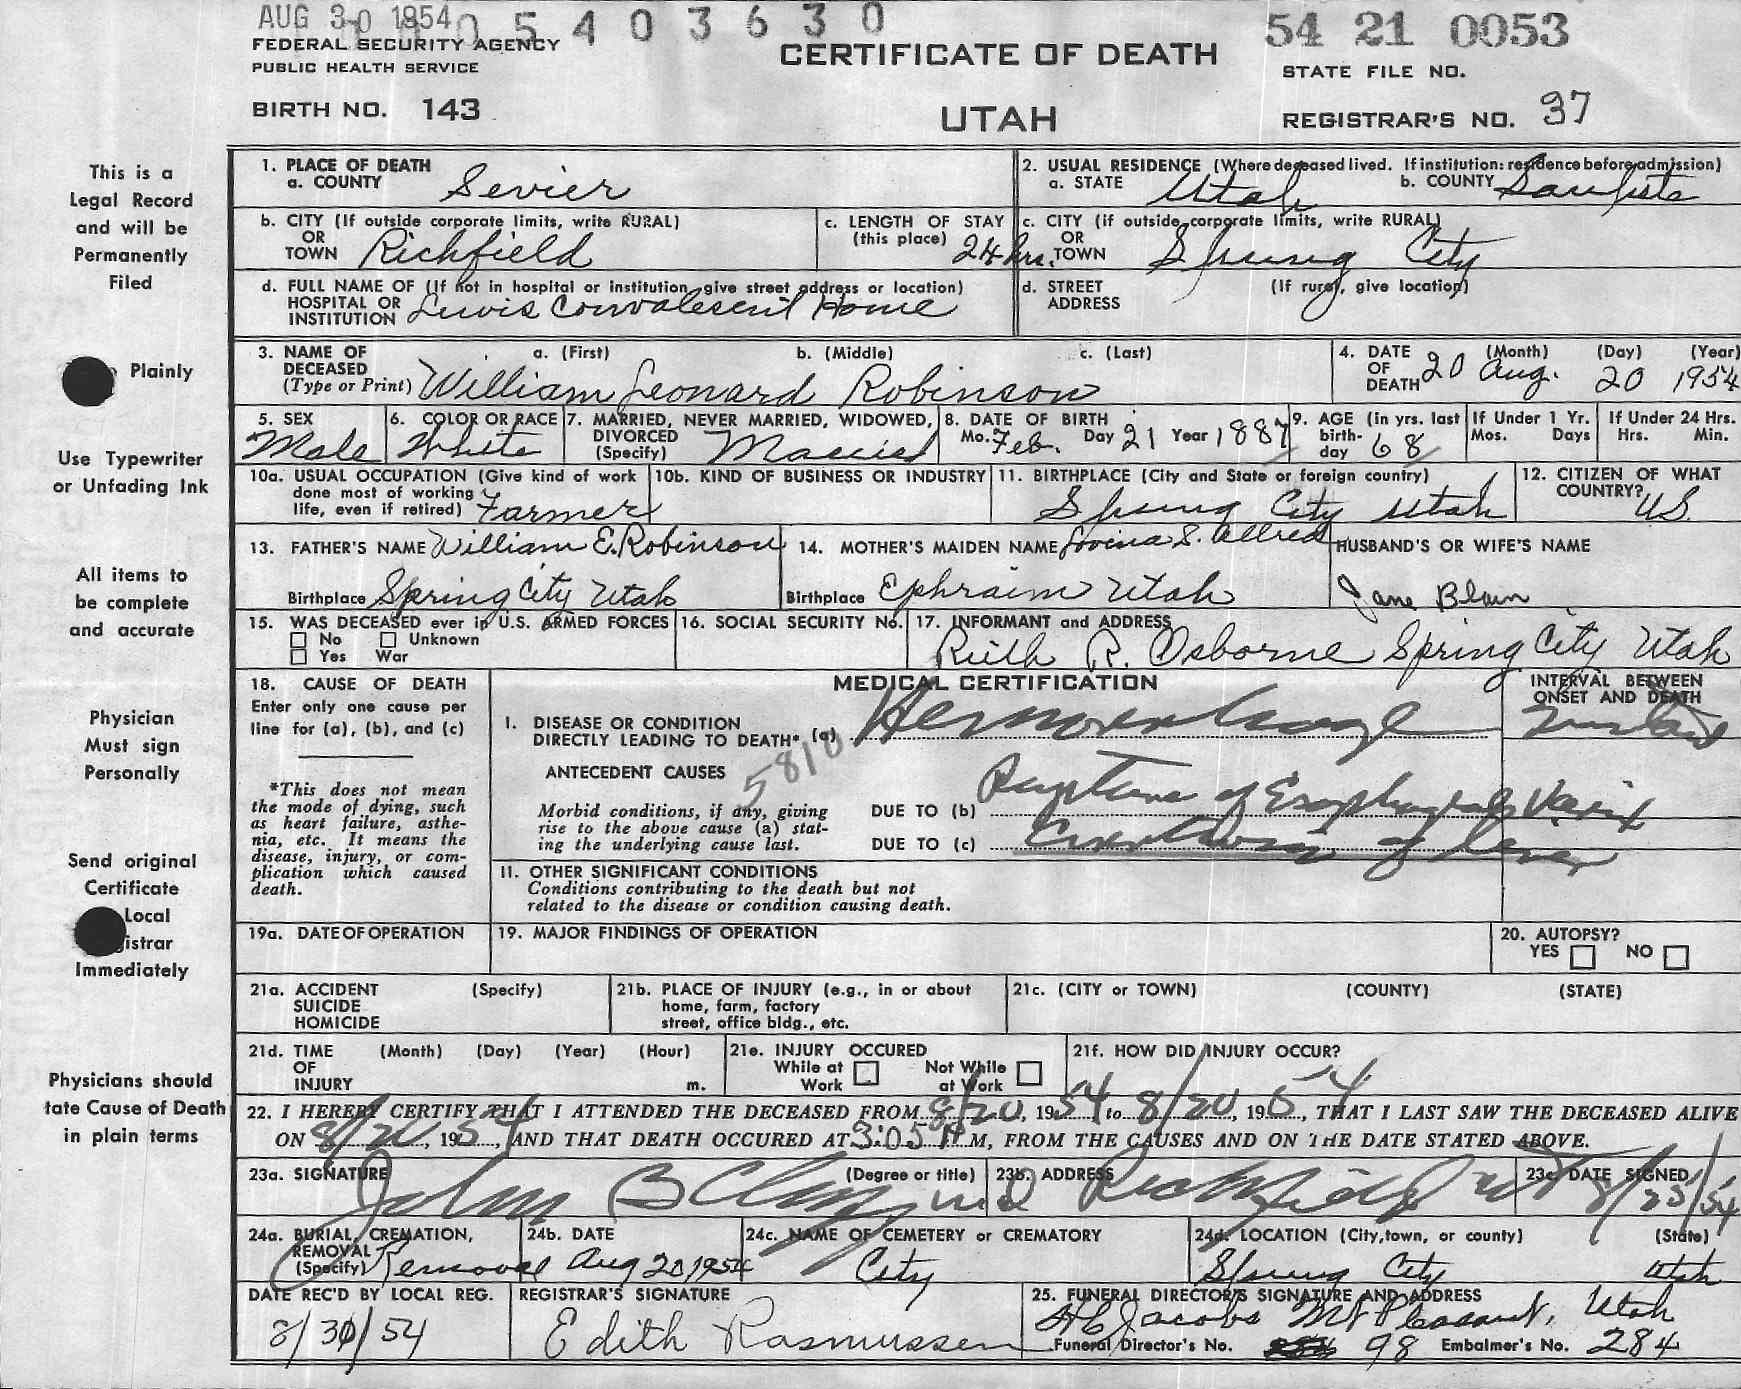 AUG 30 1954 05403630 54 21 0053
FEDERAL SECURITY AGENCY
PUBLIC HEALTH SERVICE
CERTIFICATE OF DEATH
STATE FILE NO.
BIRTH NO. 143
UTAH
REGISTRAR'S NO. 37
This is a
Legal Record
and will be
Permanently
Filed
Plainly
Use Typewriter
or Unfading Ink
All items to
be complete
and accurate
Physician
Must sign
Personally
Send original
Certificate
Local
istrar
Immediately
Physicians should
tate Cause of Death
in plain terms
1. PLACE OF DEATH
a. COUNTY Sevier
2. USUAL RESIDENCE (Where deceased lived. If institution: residence before admission)
a. STATE Utah b. COUNTY Sanpete
b. CITY (If outside corporate limits, write RURAL)
OR
TOWN Richfield
c. LENGTH OF STAY
(this place) 24 hrs.
c. CITY (if outside corporate limits, write RURAL)
OR
TOWN Spring City
d. FULL NAME OF (If not in hospital or institution, give street address or location)
HOSPITAL OR
INSTITUTION Lewis Convalescent Home
d. STREET (If rural, give location)
ADDRESS
3. NAME OF a. (First) b. (Middle) c. (Last)
DECEASED
(Type or Print) William Leonard Robinson
4. DATE (Month) (Day) (Year)
OF
DEATH 20 Aug. 20 1954
5. SEX
Male
6. COLOR OR RACE
White
7. MARRIED, NEVER MARRIED, WIDOWED,
DIVORCED
(Specify) Married
8. DATE OF BIRTH
Mo. Feb. Day 21 Year 1887
9. AGE (in yrs. last
birth-
day 68
If Under 1 Yr.
Mos. Days
If Under 24 Hrs.
Hrs. Min.
10a. USUAL OCCUPATION (Give kind of work
done most of working
life, even if retired) Farmer
10b. KIND OF BUSINESS OR INDUSTRY
11. BIRTHPLACE (City and State or foreign country)
Spring City Utah
12. CITIZEN OF WHAT
COUNTRY?
U.S.
13. FATHER'S NAME William E. Robinson
Birthplace Spring City Utah
14. MOTHER'S MAIDEN NAME Lovina S. Allred
Birthplace Ephraim Utah
HUSBAND'S OR WIFE'S NAME
Jane Blain
15. WAS DECEASED ever in U.S. ARMED FORCES
No Unknown
Yes War
16. SOCIAL SECURITY No.
17. INFORMANT and ADDRESS
Ruth R. Osborne Spring City Utah
18. CAUSE OF DEATH
Enter only one cause per
line for (a), (b), and (c)
*This does not mean
the mode of dying, such
as heart failure, asthe-
nia, etc. It means the
disease, injury, or com-
plication which caused
death.
MEDICAL CERTIFICATION
INTERVAL BETWEEN
ONSET AND DEATH
I. DISEASE OR CONDITION
DIRECTLY LEADING TO DEATH* (a) Hemorrhage
5810
ANTECEDENT CAUSES
Morbid conditions, if any, giving
rise to the above cause (a) stat-
ing the underlying cause last.
DUE TO (b) Rupture of Esophageal Varix
DUE TO (c) Cirrhosis of liver
II. OTHER SIGNIFICANT CONDITIONS
Conditions contributing to the death but not
related to the disease or condition causing death.
19a. DATE OF OPERATION
19. MAJOR FINDINGS OF OPERATION
20. AUTOPSY?
YES NO
21a. ACCIDENT (Specify)
SUICIDE
HOMICIDE
21b. PLACE OF INJURY (e.g., in or about
home, farm, factory
street, office bldg., etc.
21c. (CITY or TOWN) (COUNTY) (STATE)
21d. TIME (Month) (Day) (Year) (Hour)
OF
INJURY m.
21e. INJURY OCCURED
While at Not While
Work at Work
21f. HOW DID INJURY OCCUR?
22. I HEREBY CERTIFY THAT I ATTENDED THE DECEASED FROM 8/20, 1954 to 8/20, 1954, THAT I LAST SAW THE DECEASED ALIVE
ON 8/20, 1954, AND THAT DEATH OCCURED AT 3:05 P.M, FROM THE CAUSES AND ON THE DATE STATED ABOVE.
23a. SIGNATURE (Degree or title)
John B md
23b. ADDRESS
Richfield Ut
23c. DATE SIGNED
8/25/54
24a. BURIAL, CREMATION,
REMOVAL
(Specify) Removal
24b. DATE
Aug 20, 1954
24c. NAME OF CEMETERY or CREMATORY
City
24d. LOCATION (City, town, or county) (State)
Spring City Utah
DATE REC'D BY LOCAL REG.
8/30/54
REGISTRAR'S SIGNATURE
Edith Rasmussen
25. FUNERAL DIRECTOR'S SIGNATURE AND ADDRESS
HC Jacobs Mt Pleasant, Utah
Funeral Director's No. 98 Embalmer's No. 284